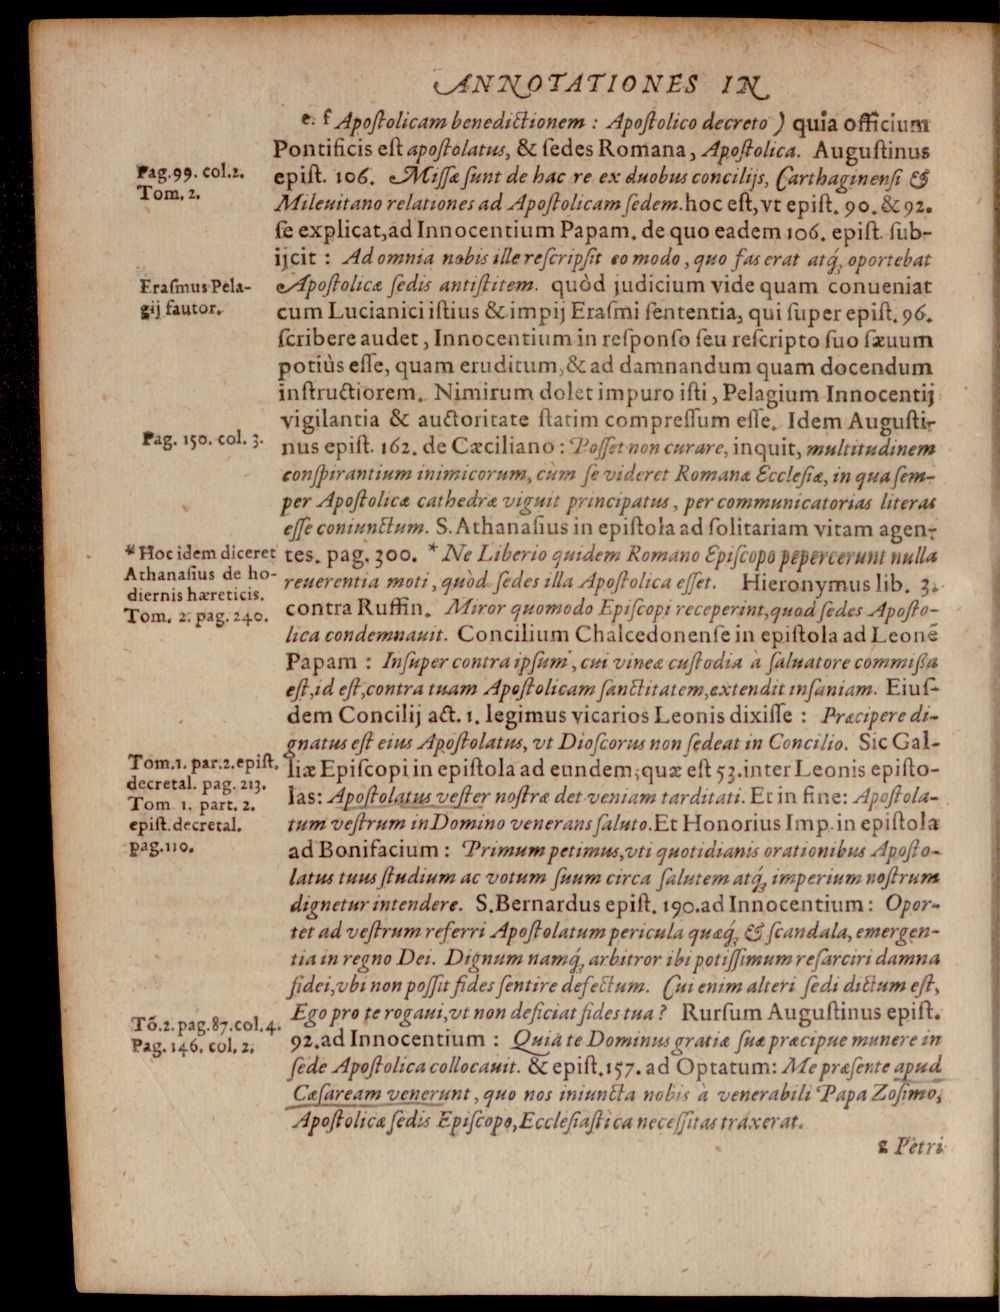 ANNOTATIONES IN
e. f Apostolicam benedictionem : Apostolico decreto ) quia officium
Pontificis est apostolatus, & sedes Romana, Apostolica. Augustinus
Pag. 99. col. 2.
Tom. 2.
epist. 106. Missæ sunt de hac re ex duobus concilijs, Carthaginensi &
Mileuitano relationes ad Apostolicam sedem. hoc est, vt epist. 90. & 92.
se explicat, ad Innocentium Papam. de quo eadem 106. epist. sub-
ijcit : Ad omnia nobis ille rescripsit eo modo, quo fas erat atq́; oportebat
Erasmus Pela-
gij fautor.
Apostolicæ sedis antistitem. quòd judicium vide quam conueniat
cum Lucianici istius & impij Erasmi sententia, qui super epist. 96.
scribere audet, Innocentium in responso seu rescripto suo sæuum
potiùs esse, quam eruditum, & ad damnandum quam docendum
instructiorem. Nimirum dolet impuro isti, Pelagium Innocentij
vigilantia & auctoritate statim compressum esse. Idem Augusti-
Pag. 150. col. 3.
nus epist. 162. de Cæciliano : Posset non curare, inquit, multitudinem
conspirantium inimicorum, cùm se videret Romanæ Ecclesiæ, in qua sem-
per Apostolicæ cathedræ viguit principatus, per communicatorias literas
esse coniunctum. S. Athanasius in epistola ad solitariam vitam agen-
* Hoc idem diceret
Athanasius de ho-
diernis hæreticis.
Tom. 2. pag. 240.
tes. pag. 300. * Ne Liberio quidem Romano Episcopo pepercerunt nulla
reuerentia moti, quòd sedes illa Apostolica esset. Hieronymus lib. 3.
contra Ruffin. Miror quomodo Episcopi receperint, quod sedes Aposto-
lica condemnauit. Concilium Chalcedonense in epistola ad Leonē
Papam : Insuper contra ipsum, cui vineæ custodia à saluatore commißa
est, id est, contra tuam Apostolicam sanctitatem, extendit insaniam. Eius-
dem Concilij act. 1. legimus vicarios Leonis dixisse : Præcipere di-
gnatus est eius Apostolatus, vt Dioscorus non sedeat in Concilio. Sic Gal-
Tom. 1. par. 2. epist.
decretal. pag. 213.
Tom 1. part. 2.
epist. decretal.
pag. 110.
liæ Episcopi in epistola ad eundem, quæ est 53. inter Leonis episto-
las: Apostolatus vester nostræ det veniam tarditati. Et in fine: Apostola-
tum vestrum in Domino venerans saluto. Et Honorius Imp. in epistola
ad Bonifacium : Primum petimus, vti quotidianis orationibus Aposto-
latus tuus studium ac votum suum circa salutem atq́; imperium nostrum
dignetur intendere. S. Bernardus epist. 190. ad Innocentium : Opor-
tet ad vestrum referri Apostolatum pericula quæq́; & scandala, emergen-
tia in regno Dei. Dignum namq́; arbitror ibi potissimum resarciri damna
fidei, vbi non possit fides sentire defectum. Cui enim alteri sedi dictum est,
Ego pro te rogaui, vt non deficiat fides tua ? Rursum Augustinus epist.
Tō. 2. pag. 87. col. 4.
Pag. 146. col. 2.
92. ad Innocentium : Quia te Dominus gratiæ suæ præcipue munere in
sede Apostolica collocauit. & epist. 157. ad Optatum: Me præsente apud
Cæsaream venerunt, quo nos iniuncta nobis à venerabili Papa Zosimo,
Apostolicæ sedis Episcopo, Ecclesiastica necessitas traxerat.
g Petri